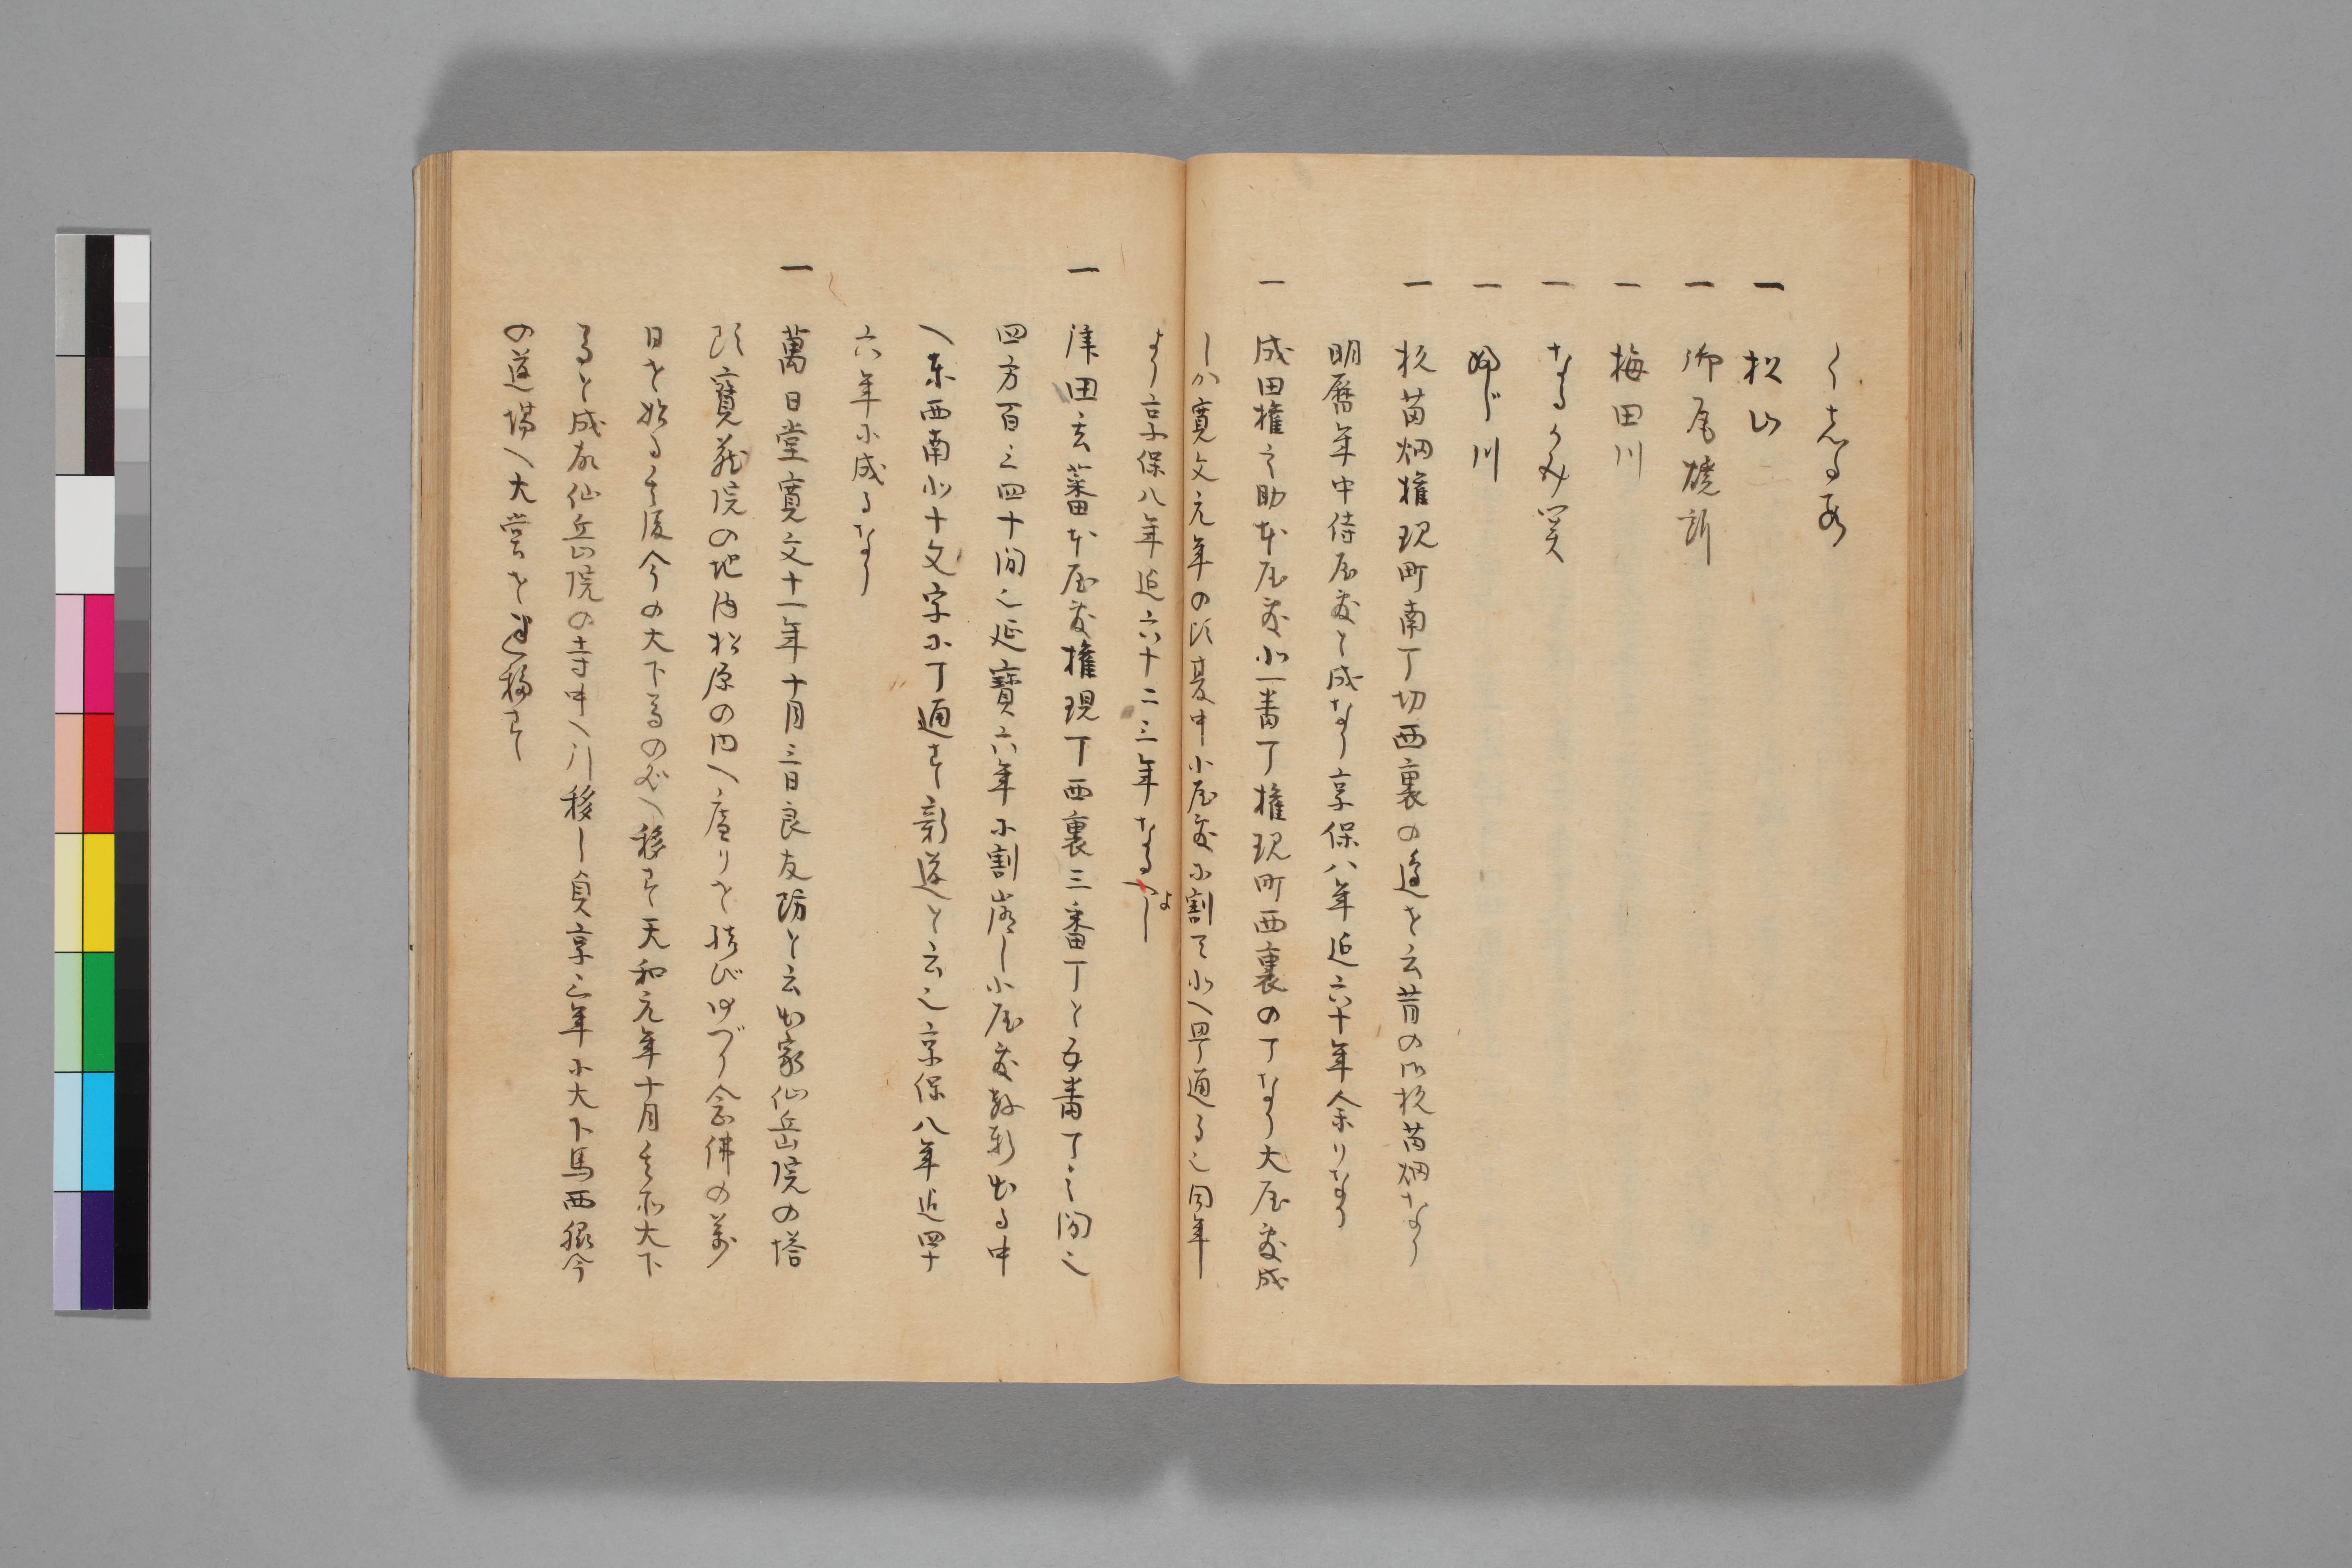 くしるる
一 松山
一 御尾焼所
一 梅田川
一 なるかみ関
一 ぬか川
一 杉苗畑権現町南丁切西裏の邊を云昔の御杉苗畑なり
明暦年中侍屋敷と成なり享保八年迄六十年余りなり
一 成田権之助本屋敷北一番丁権現町西裏の丁なり大屋敷成
しか寛文元年の頃其中小屋敷に割て北へ早通る也同年
より享保八年迄六十二三年なるへし
一 津田玄蕃本屋敷権現丁西裏三番丁と五番丁之間也
四方百三四十間也延寶六年に割崩し小屋敷数軒出る中
へ東西南北十文字に丁通す新道と云也享保八年迄四十
六年に成るなり
一 萬日堂寛文十一年十月三日良友坊と云出家仙岳院の塔
頭寶蔵院の地内松原の内へ庵りを結び念佛の萬
日を始る其後今の大下馬の処へ移す天和元年十月其所大下
馬と成故仙岳院の寺中へ引移し貞享三年に大下馬西縁今
の道場へ大堂を建移す